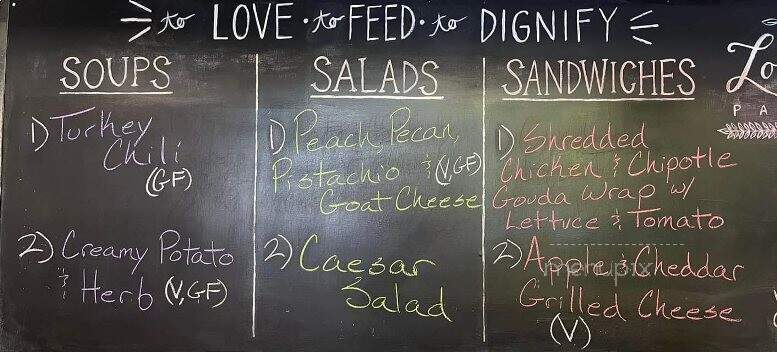 to LOVE · to FEED · to DIGNIFY
SOUPS
1) Turkey
Chili
(GF)
2) Creamy Potato
& Herb (V,GF)
SALADS
1) Peach, Pecan,
Pistachio & (V,GF)
Goat Cheese
2) Caesar
Salad
SANDWICHES
1) Shredded
Chicken & Chipotle
Gouda Wrap w/
Lettuce & Tomato
2) Apple & Cheddar
Grilled Cheese
(V)
Lo
P A
menupix